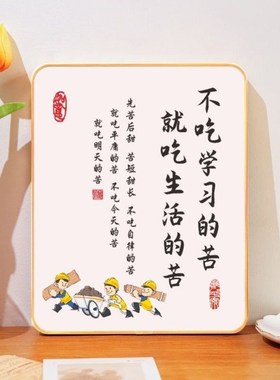 不吃学习的苦
就吃生活的苦
先苦后甜 苦短甜长 不吃自律的苦
就吃平庸的苦 不吃今天的苦
就吃明天的苦